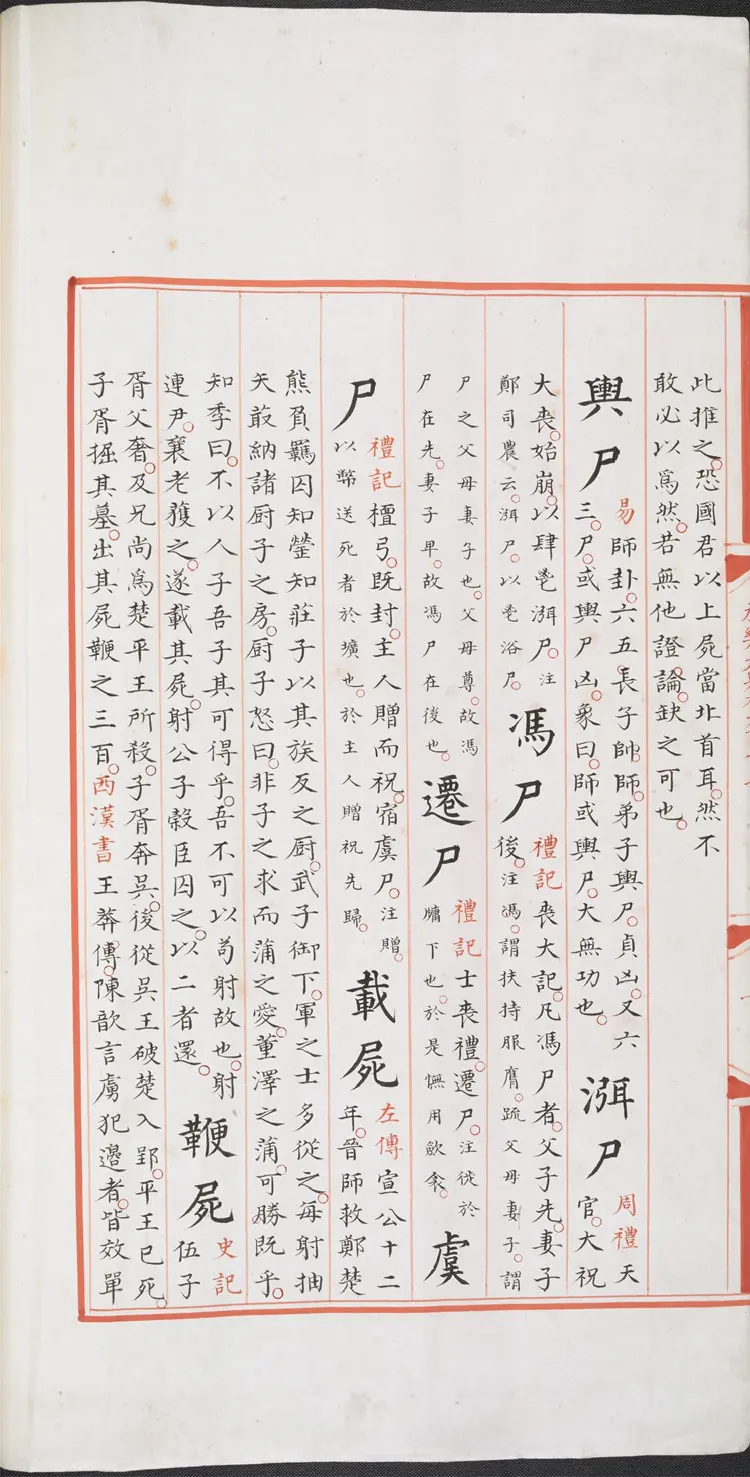 此推之恐國君以上屍當北首耳然不
敢必以爲然若無他證論缺之可也
輿尸
易師卦六五長子帥師弟子輿尸貞凶又六
三尸或輿尸凶象曰師或輿尸大無功也
渳尸
周禮天
官大祝
大喪始崩以肆鬯渳尸注
鄭司農云渳尸以鬯浴尸
馮尸
禮記喪大記凡馮尸者父子先妻子
後注馮謂扶持服膺疏父母妻子謂
尸之父母妻子也父母尊故馮
尸在先妻子卑故馮尸在後也
遷尸
禮記士喪禮遷尸注徙於
牖下也於是幠用斂衾
虞
尸
禮記檀弓既封主人贈而祝宿虞尸注贈
以幣送死者於壙也於主人贈祝先歸
載屍
左傳宣公十二
年晉師救鄭楚
熊負羈囚知罃知莊子以其族反之厨武子御下軍之士多從之每射抽
矢菆納諸厨子之房厨子怒曰非子之求而蒲之愛董澤之蒲可勝既乎
知季曰不以人子吾子其可得乎吾不可以苟射故也射
連尹襄老獲之遂載其屍射公子穀臣囚之以二者還
鞭屍
史記
伍子
胥父奢及兄尚爲楚平王所殺子胥奔吳後從吳王破楚入郢平王已死
子胥掘其墓出其屍鞭之三百西漢書王莽傳陳歆言虜犯邊者皆效單